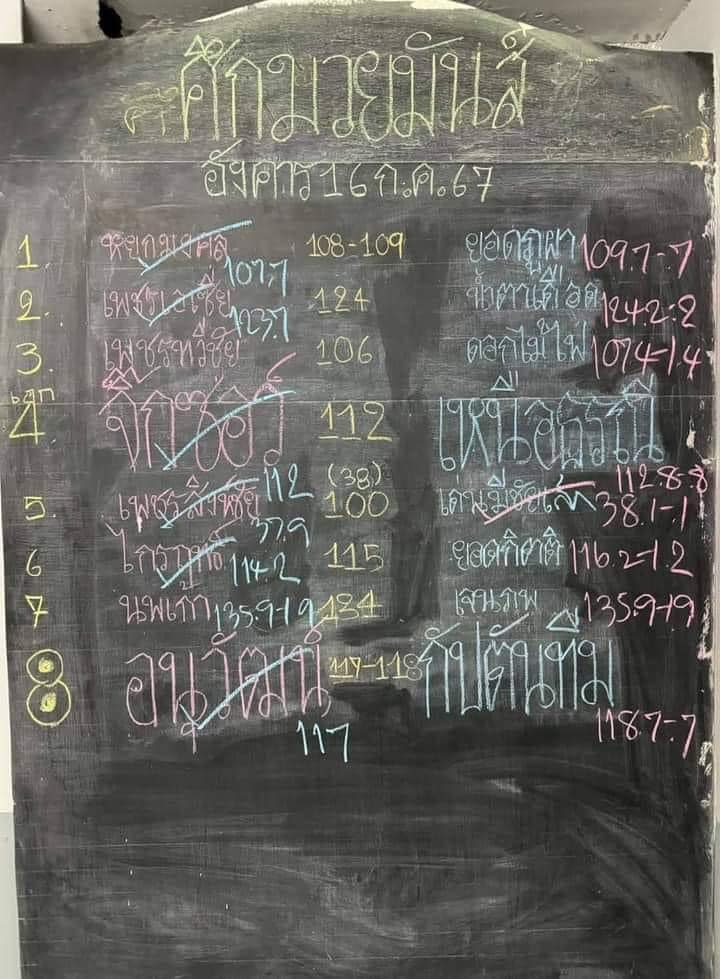 ศึกมวยมันส์
อังคาร 16 ก.ค. 67
1. หยกมงคล 108-109 ยอดภูผา 109.7-.7
107.7
2. เพชรเอเซีย 124 น้ำตาเดือด 124.2-.2
123.7
3. เพชรทวีชัย 106 ดอกไม้ไฟ 107.4-1.4
4. จิ๊กซอว์ 112 เหนือธรณี
112 (38) 112.8-.8
5. เพชรสิงห์ชัย 100 เด่นมีชัยเล็ก 38.1-.1
37.9
6 ไกรฤทธิ์ 115 ยอดกิตติ 116.2-1.2
114.2
7 นพเก้า 135.9-1.9 134 เจนภพ 135.9-1.9
8 อนุวัฒน์ 117-118 กัปตันทีม
117 118.7-.7